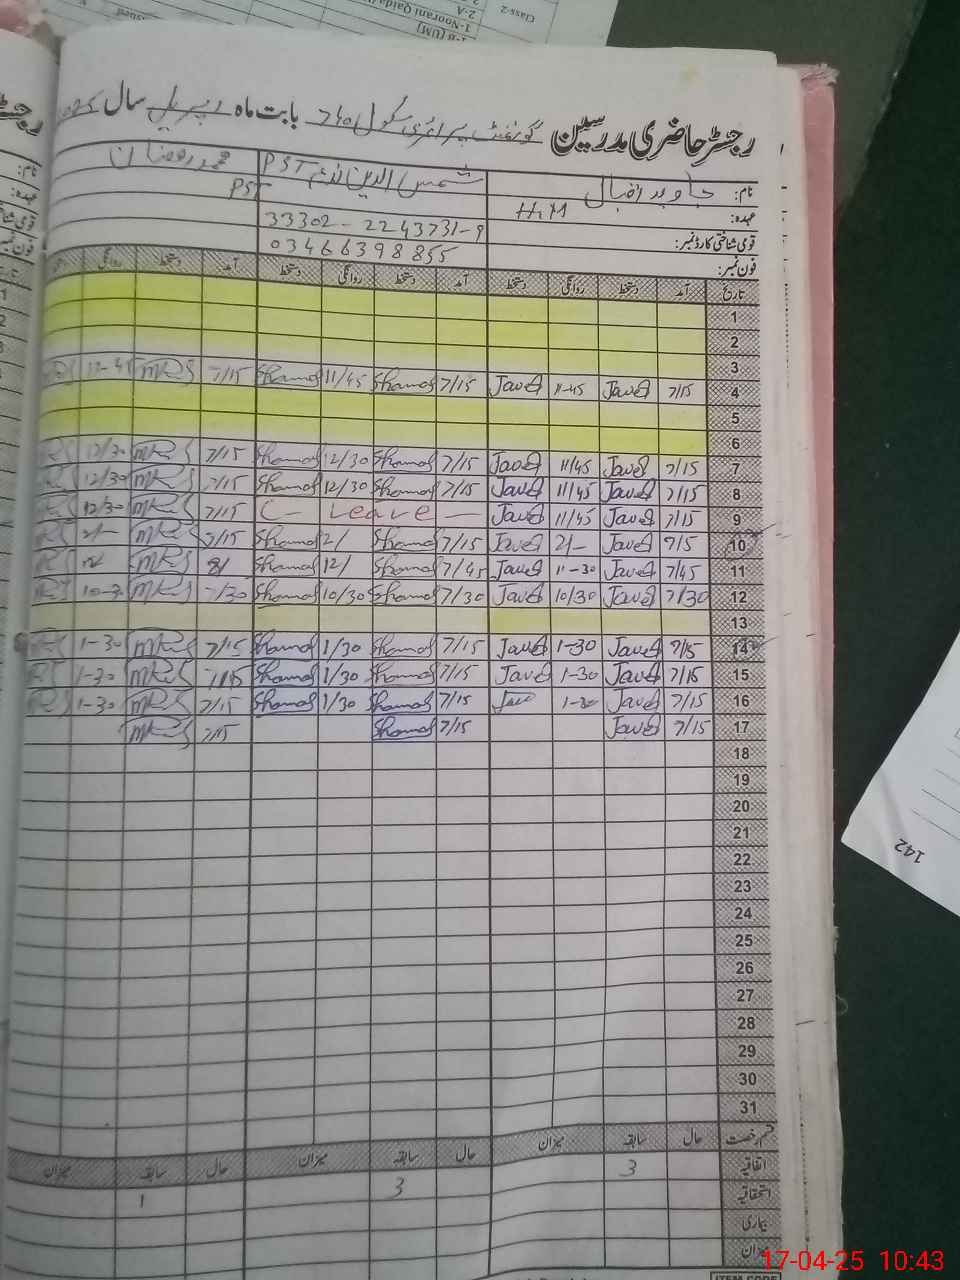 Class-2
2-A
1-Noorani Qaida
1-B (UM)
رجسٹر حاضری مدرسین گورنمنٹ پرائمری سکول بابت ماہ اپریل سال 2025
نام: جاوید اقبال شمس الدین PST محمد رمضان
عہدہ: H.M PST
قومی شناختی کارڈ نمبر: 33302-2243731-9
فون نمبر: 03466398855
تاریخ آمد دستخط روانگی دستخط آمد دستخط روانگی دستخط آمد دستخط روانگی
1
2
3
4 7/15 Javed 11-45 Javed 7/15 Shams 11/45 Shams 7/15
5
6
7 7/15 Javed 11/45 Javed 7/15 Shams 12/30 Shams 7/15 12/30
8 7/15 Javed 11/45 Javed 7/15 Shams 12/30 Shams 7/15 12/30
9 7/15 Javed 11/45 Javed C- Leave - 7/15 12/30
10 Javed 2/- Javed 7/15 Shams 2/ Shams 7/15
11 7/45 Javed 11-30 Javed 7/45 Shams 12/ Shams 8/
12 7/30 Javed 10/30 Javed 7/30 Shams 10/30 Shams 7/30 10-30
13
14 7/15 Javed 1-30 Javed 7/15 Shams 1/30 Shams 7/15 1-30
15 7/15 Javed 1-30 Javed 7/15 Shams 1/30 Shams 7/15 1-30
16 7/15 Javed 1-30 7/15 Shams 1/30 Shams 7/15 1-30
17 7/15 Javed 7/15 Shams 7/15
18
19
20
21
22
23
24
25
26
27
28
29
30
31
قسم رخصت حال سابقہ میزان حال سابقہ میزان حال سابقہ میزان
اتفاقیہ 3 3 1
استحقاقیہ
بیماری
میزان
ITEM CODE
142
17-04-25 10:43